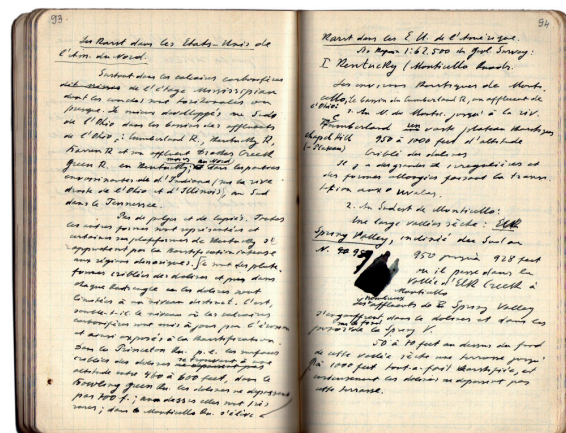 93.
Les Karst dans les Etats-Unis de
l'Am. du Nord.
Surtout dans les calcaires carbonifères
de l'étage Mississippian
dont les couches sont horizontales ou
presque. Le mieux développés au Sud
de l'Ohio dans les bassins des affluents
de l'Ohio: Cumberland R., Kentucky R.,
Barren R et un affluent
Green R. en Kentucky; dans les parties
environnantes de l'Indiana (sur la rive
droite de l'Ohio et d'Illinois), au Sud
dans le Tennessee.
Pas de poljes et de lapiés. Toutes
les autres formes sont représentées et
certaines en plateformes de Kentucky
apportent pas la karstification intense
aux régions dinariques. Ce sont des plate-
formes criblées de dolines et puis dans
chaque rectangle les dolines sont
limitées à un niveau distinct. C'est,
semble-t-il le niveau où les calcaires
carbonifères sont mis à jour par l'érosion
et ainsi exposés à la karstification.
Dans le Princeton Qu. p. e. les surfaces
criblées des dolines
altitude entre 460 à 600 feet, dans le
Bowling green Qu. les dolines ne dépassent
pas 700 f.; au dessus elles sont très
rares; dans le Monticello Qu. s'élève à
94.
Karst dans les E. U. de l'Amérique.
1:62.500 du Geol. Survey:
I Kentucky (Monticello Quadr.
Les environs karstiques de Monti-
cello, le bassin du Cumberland R, un affluent de
l'Ohio
1. Au N de Monti. jusqu'à la riv.
Cumberland vaste plateau karstique
950 à 1000 feet d'altitude
Criblé des dolines
Il y a des grandes et irrégulières et
des formes allongées faisant la transi-
tion avec uvalas.
2. Au Sudest de Monticello:
Une large vallée sèche: Elk
Spring Valley, inclinée du Sud au
N. 950 jusqu'à 928 feet
où il passe dans la
Vallée d'Elk Creek à
Monticello
nombreux
Les affluents de Spring Valley
s'engouffrent dans les dolines et dans les
sur le fond
de la Spring V.
50 à 70 feet au dessus du fond
de cette vallée sèche une terrasse jusqu'
à 1000 feet tout-à-fait karstifiée, et
les dolines ne dépassent pas
cette terrasse.